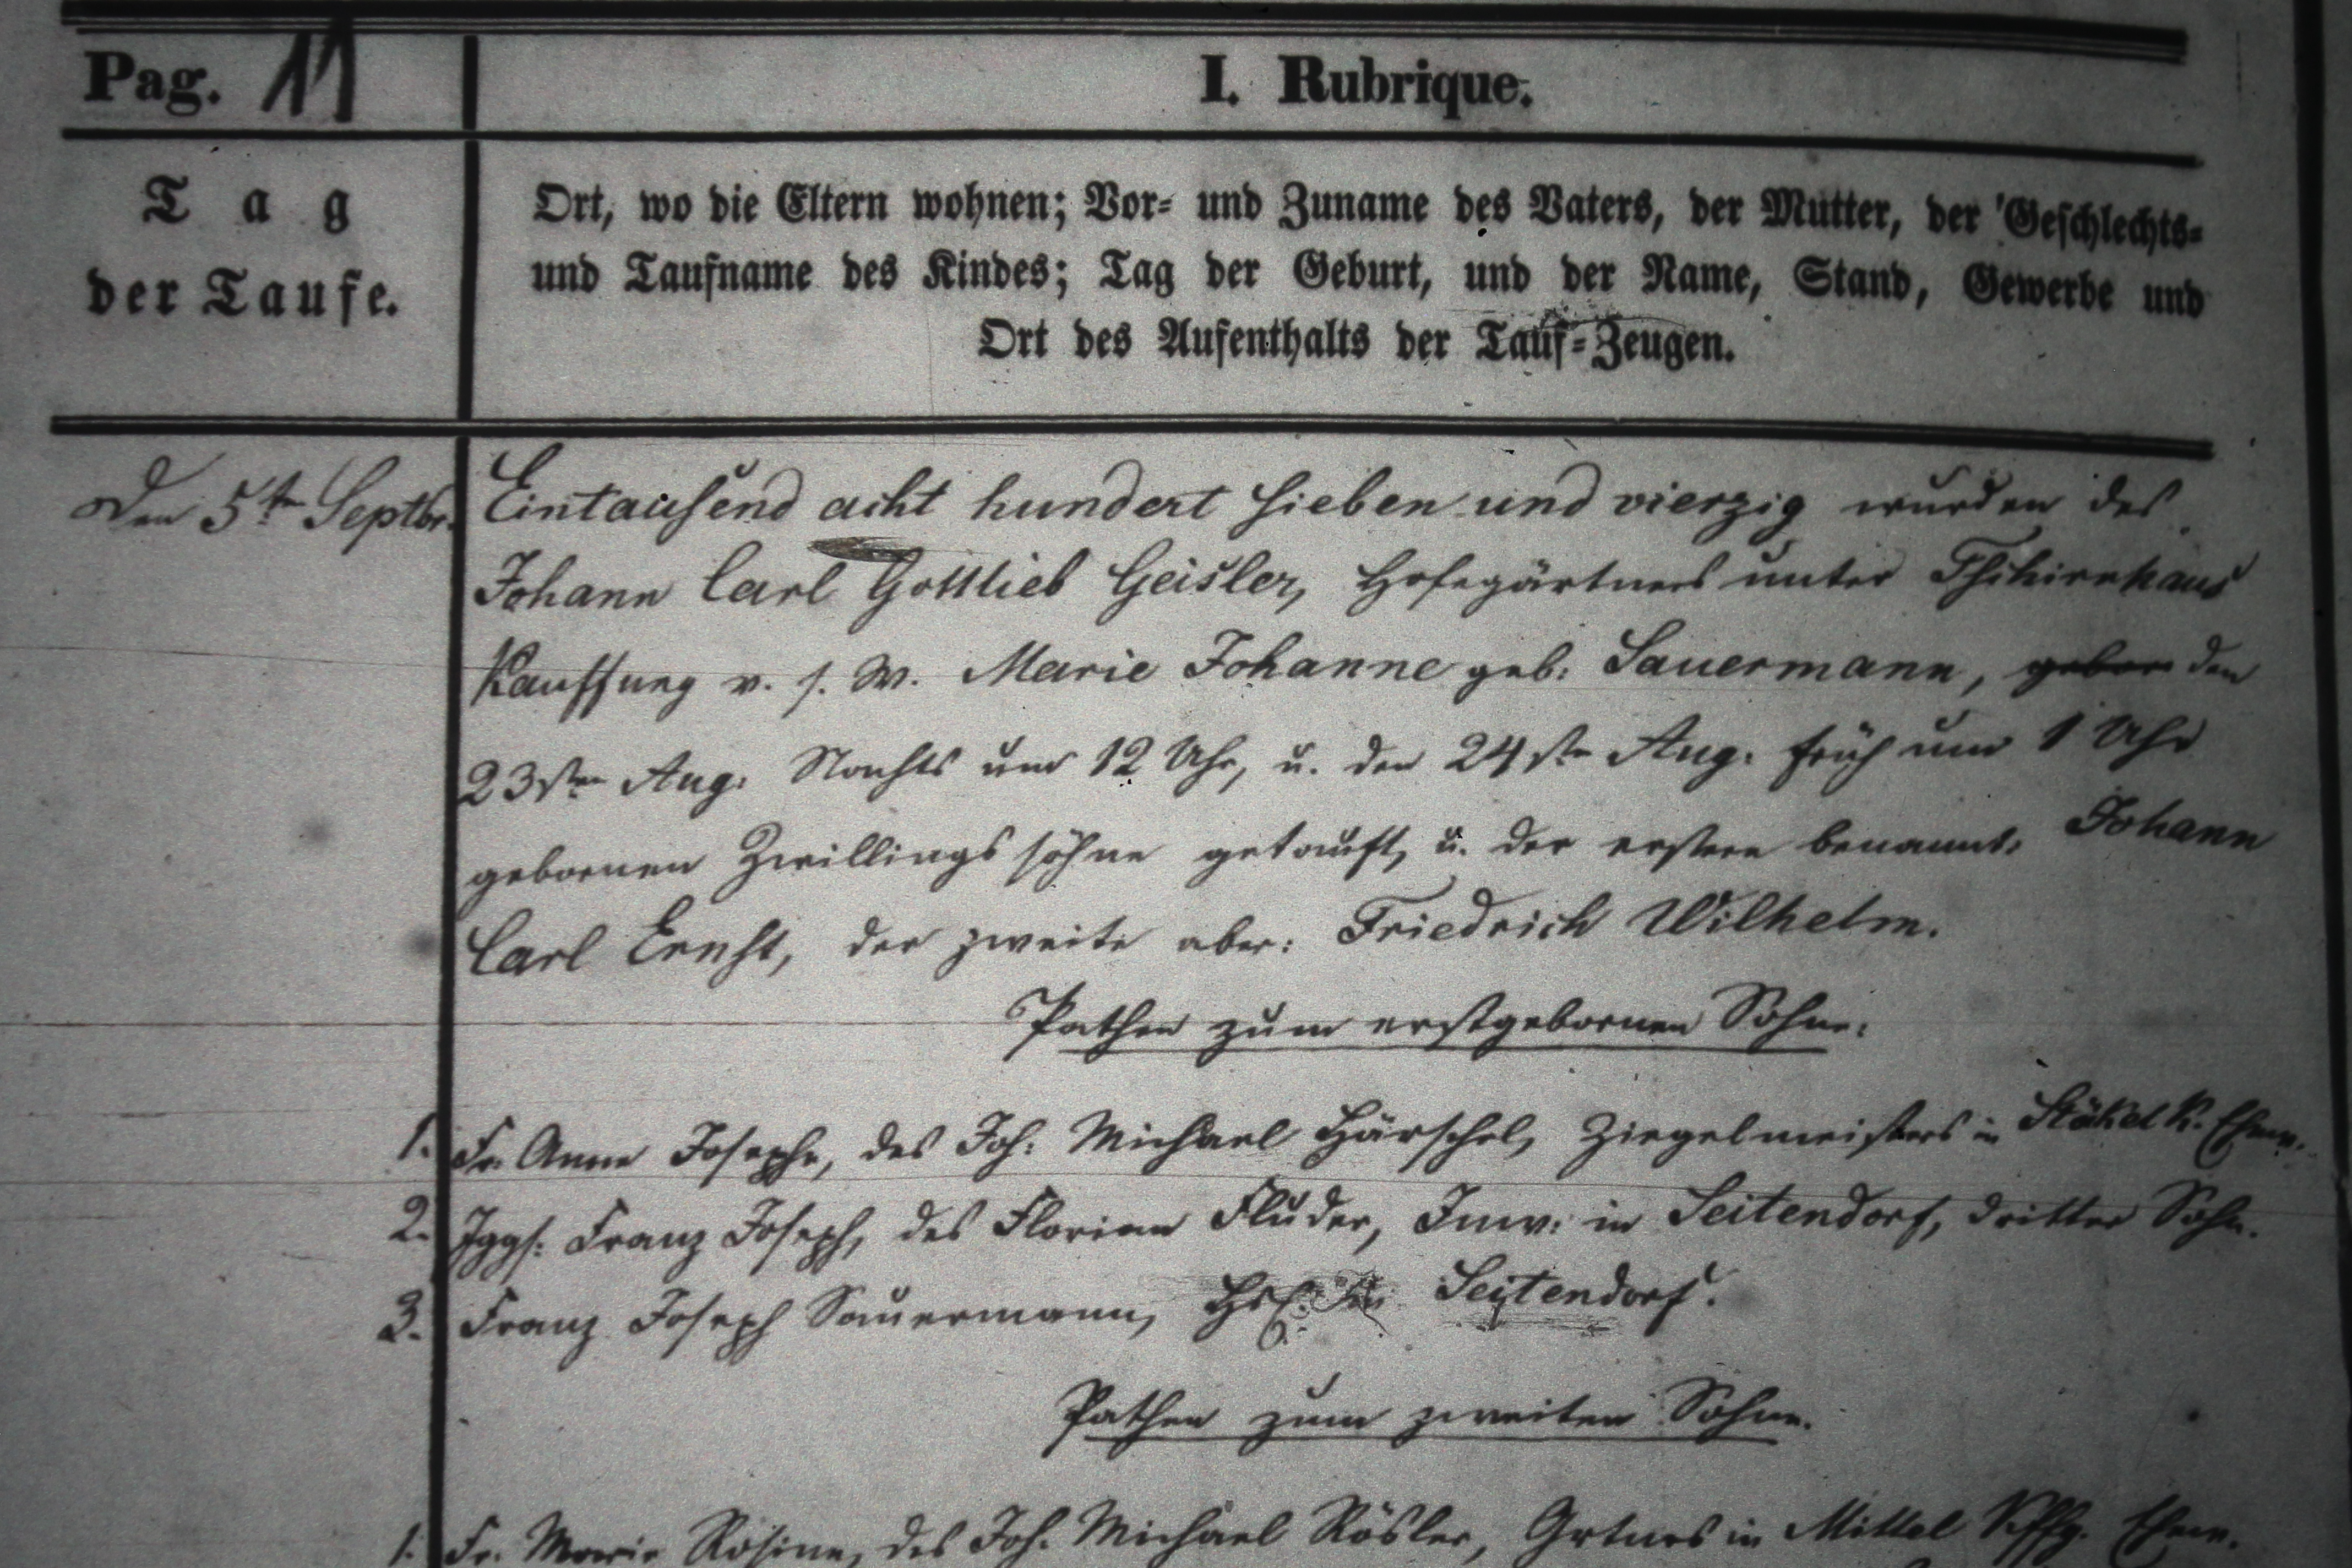 Pag. 11
I. Rubrique.
Tag
der Taufe.
Ort, wo die Eltern wohnen; Vor- und Zuname des Vaters, der Mutter, der Geschlechts-
und Taufname des Kindes; Tag der Geburt, und der Name, Stand, Gewerbe und
Ort des Aufenthalts der Tauf-Zeugen.
Den 5ten Septbr. Eintausend acht hundert sieben und vierzig wurden des
Johann Carl Gottlieb Geisler, Hofegärtners unter Tschirnhaus
Kauffung v. s. W. Marie Johanne geb: Sauermann, den
23sten Aug: Nachts um 12 Uhr, u. den 24sten Aug. früh um 1 Uhr
gebornen Zwillingssöhne getauft, u. der erstere benannt: Johann
Carl Ernst, der zweite aber: Friedrich Wilhelm.
Pathen zum erstgebornen Sohne:
1. Fr. Anna Josepha, des Joh: Michael Härschel, Ziegelmeisters in Stöckel K. Ehew.
2. Jggs: Franz Joseph, des Florian Fluder, Inw: in Seitendorf, dritter Sohn.
3. Franz Joseph Sauermann, in Seitendorf.
Pathen zum zweiten Sohne.
1. Fr. Marie Rosine, des Joh. Michael Rösler, Grtners in Mittel Kffg. Ehew.